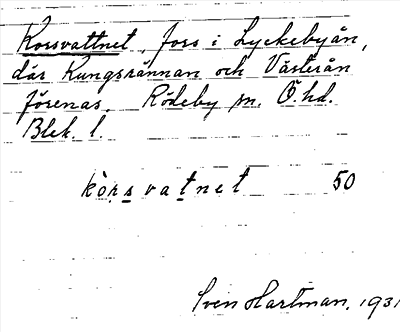 Korsvattnet, fors i Lyckebyån,
där Kungsrännan och Västerån
förenas. Rödeby sn. Ö. hd.
Blek. l.
kòrsvatnet 50
Sven Hartman, 1931